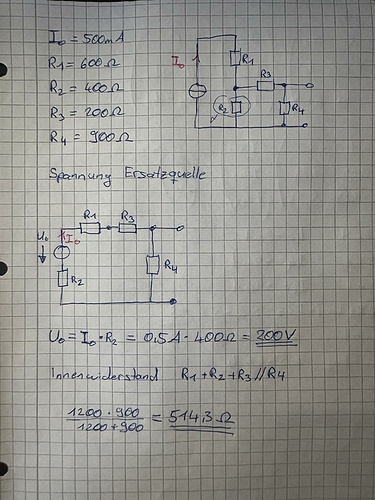 I₀ = 500mA
R1 = 600Ω
R2 = 400Ω
R3 = 200Ω
R4 = 900Ω
I₀
R1
R3
R2
R4
Spannung Ersatzquelle
R1
R3
U₀
I₀
R4
R2
U₀ = I₀ · R2 = 0,5A · 400Ω = 200V
Innenwiderstand R1+R2+R3//R4
1200 · 900
1200 + 900
= 514,3 Ω